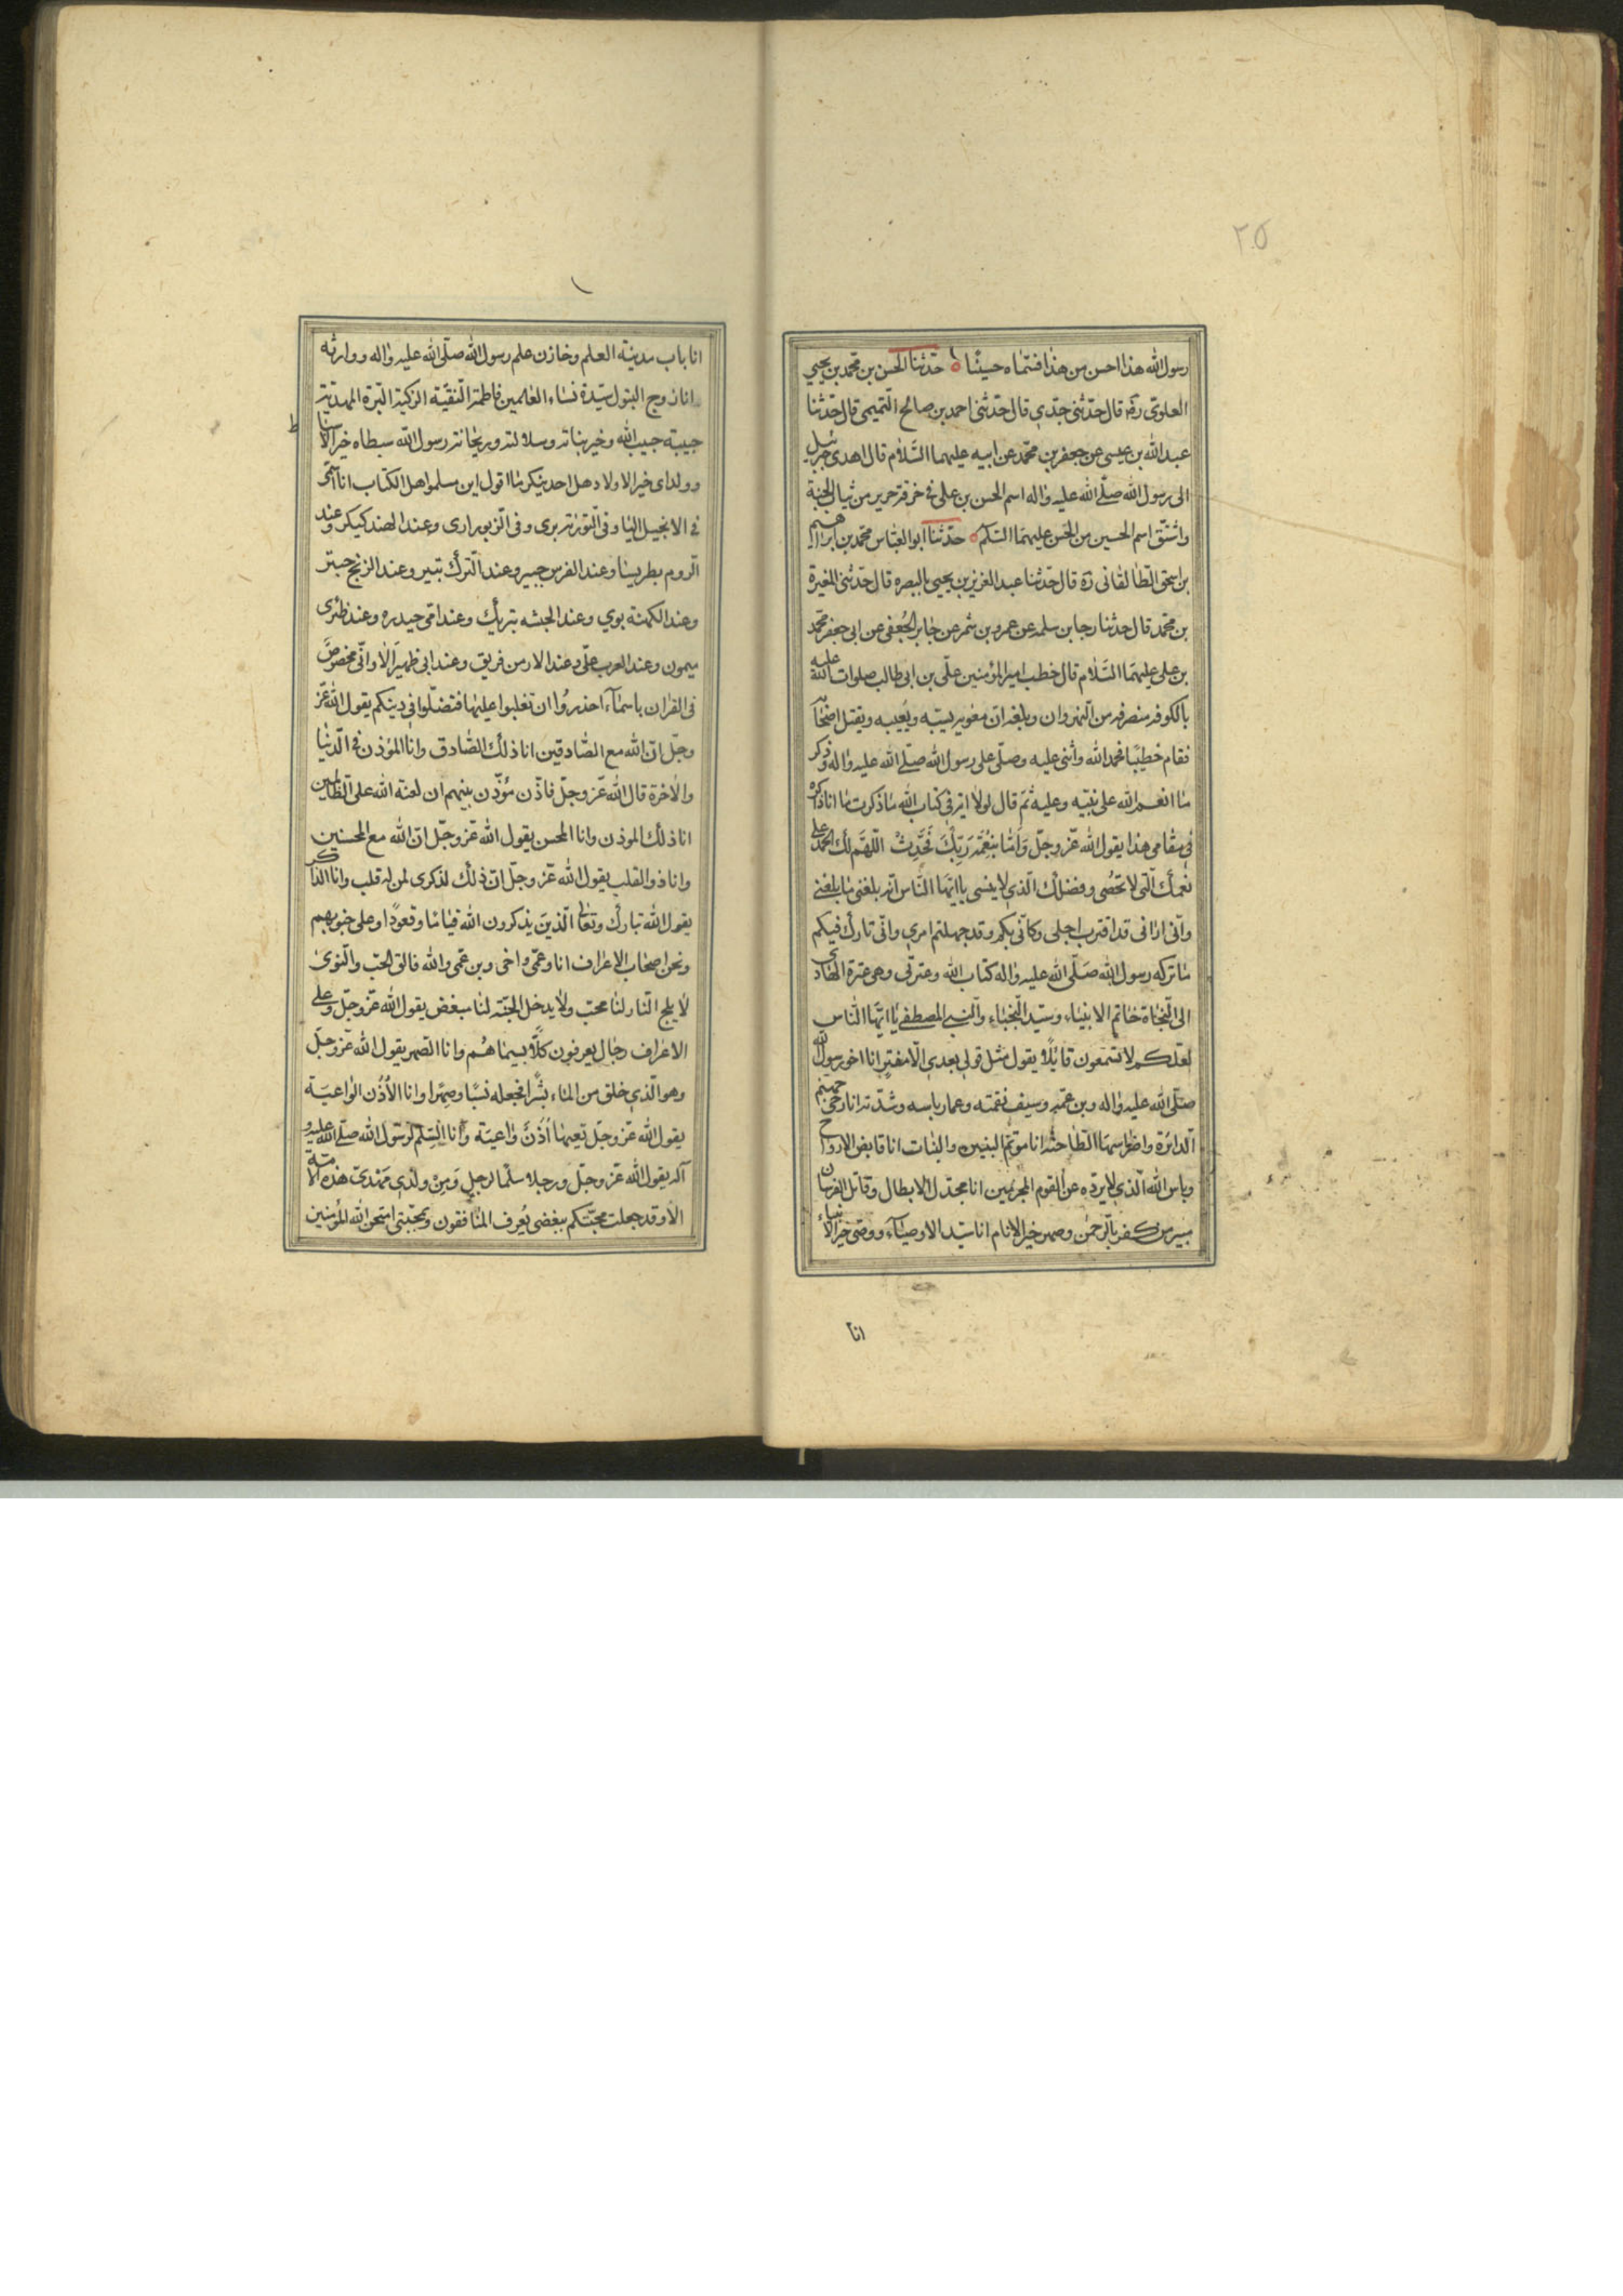 ٢٥
رسول الله هذا احسن من هذا فسماه حسينا حدثنا الحسن بن محمد بن يحيى
العلوى ره قال حدثنى جدي قال حدثنى احمد بن صالح التميمى قال حدثنا
عبد الله بن عيسى عن جعفر بن محمد عن ابيه عليهما السلام قال اهدى جبرئيل
الى رسول الله صلى الله عليه واله اسم الحسن بن على فى خرقة حرير من ثياب الجنة
واشتق اسم الحسين من الحسن عليهما السلم حدثنا ابو العباس محمد بن ابراهيم
بن اسحق الطالقانى ره قال حدثنا عبد العزيز بن يحيى بالبصره قال حدثنى المغيرة
بن محمد قال حدثنا رجا بن سلمه عن عمرو بن شمر عن جابر الجعفى عن ابى جعفر محمد
بن على عليهما السلام قال خطب امير المؤمنين على بن ابى طالب صلوات الله عليه
بالكوفه منصرفه من النهروان وبلغه ان معويه يسبه ويعيبه ويقتل اصحابه
فقام خطيبا فحمد الله واثنى عليه وصلى على رسول الله صلى الله عليه واله وذكر
ما انعم الله على نبيه وعليه ثم قال لولا اية فى كتاب الله ما ذكرت ما انا ذاكره
فى مقامى هذا يقول الله عز وجل وَاَمّا بِنِعْمَةِ رَبِّكَ فَحَدِّثْ اللهم لك الحمد على
نعمك التى لا تحصى وفضلك الذي لا ينسى يا ايها الناس انه بلغنى ما بلغنى
وانى ارانى قد اقترب اجلى وكانى بكم وقد جهلتم امري وانى تارك فيكم
ما تركه رسول الله صلى الله عليه واله كتاب الله وعترتى وهى عترة الهادى
الى النجاة خاتم الانبياء وسيد النجباء والنبى المصطفى يا ايها الناس
لعلكم لا تسمعون قائلا يقول مثل قولى بعدي الا مفتر انا اخو رسول الله
صلى الله عليه واله وبن عمه وسيف نقمته وعماد باسه وشدته انا رحى جهنم
الدائرة واضراسها الطاحنة انا موتم البنين والبنات انا قابض الارواح
وباس الله الذي لا يرده عن القوم المجرمين انا مجدل الابطال وقاتل الفرسان
مبير من كفر بالرحمن وصهر خير الانام انا سيد الاوصياء ووصى خير الانبياء
انا
انا باب مدينة العلم وخازن علم رسول الله صلى الله عليه واله ووارثه
وانا زوج البتول سيدة نساء العالمين فاطمة التقية الزكية البرة المهدية
حبيبة حبيب الله وخير بناته وسلالته وريحانة رسول الله سبطاه خير الاسباط
وولداى خير الاولاد هل احد ينكر ما اقول اين مسلموا اهل الكتاب انا اسمى
فى الانجيل اليا وفى التورية برى وفى الزبور ارى وعند الهند كبكر وعند
الروم بطريسا وعند الفرس جبير وعند الترك بتير وعند الزنج حيتر
وعند الكهنة بوي وعند الحبشه بتريك وعند امى حيدره وعند ظئرى
ميمون وعند العرب على وعند الارمن فريق وعند ابى ظهير الا وانى مخصوص
فى القران باسماء احذروا ان تغلبوا عليها فتضلوا فى دينكم يقول الله عز
وجل ان الله مع الصادقين انا ذلك الصادق وانا المؤذن فى الدنيا
والاخرة قال الله عز وجل فاذن مؤذن بينهم ان لعنة الله على الظالمين
انا ذلك الموذن وانا المحسن يقول الله عز وجل ان الله مع المحسنين
وانا ذو القلب يقول الله عز وجل ان ذلك لذكرى لمن له قلب وانا الذاكر
يقول الله تبارك وتعالى الذين يذكرون الله قياما وقعودا وعلى جنوبهم
ونحن اصحاب الاعراف انا وعمى واخى وبن عمى والله فالق الحب والنوى
لا يلج النار لنا محب ولا يدخل الجنة لنا مبغض يقول الله عز وجل وعلى
الاعراف رجال يعرفون كلا بسيماهم وانا الصهر يقول الله عز وجل
وهو الذي خلق من الماء بشرا فجعله نسبا وصهرا وانا الاذن الواعية
يقول الله عز وجل تعيها اذن واعية وانا السلم لرسول الله صلى الله عليه و
آله يقول الله عز وجل ورجلا سلما لرجل ومن ولدى مهدى هذه الامة
الا وقد جعلت محبتكم ببغضى يعرف المنافقون وبمحبتى امتحن الله المؤمنين